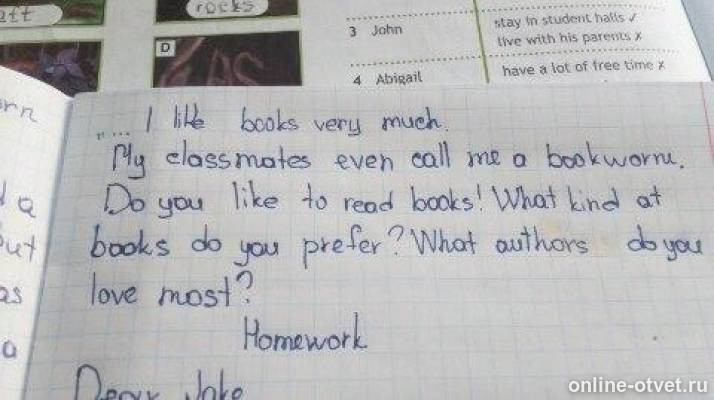 rocks
D
3 John
stay in student halls ✓
live with his parents ✗
4 Abigail
have a lot of free time ✗
„ ... I like books very much.
My classmates even call me a bookworm.
Do you like to read books! What kind at
books do you prefer? What authors do you
love most?
Homework
Dear Jake
online-otvet.ru